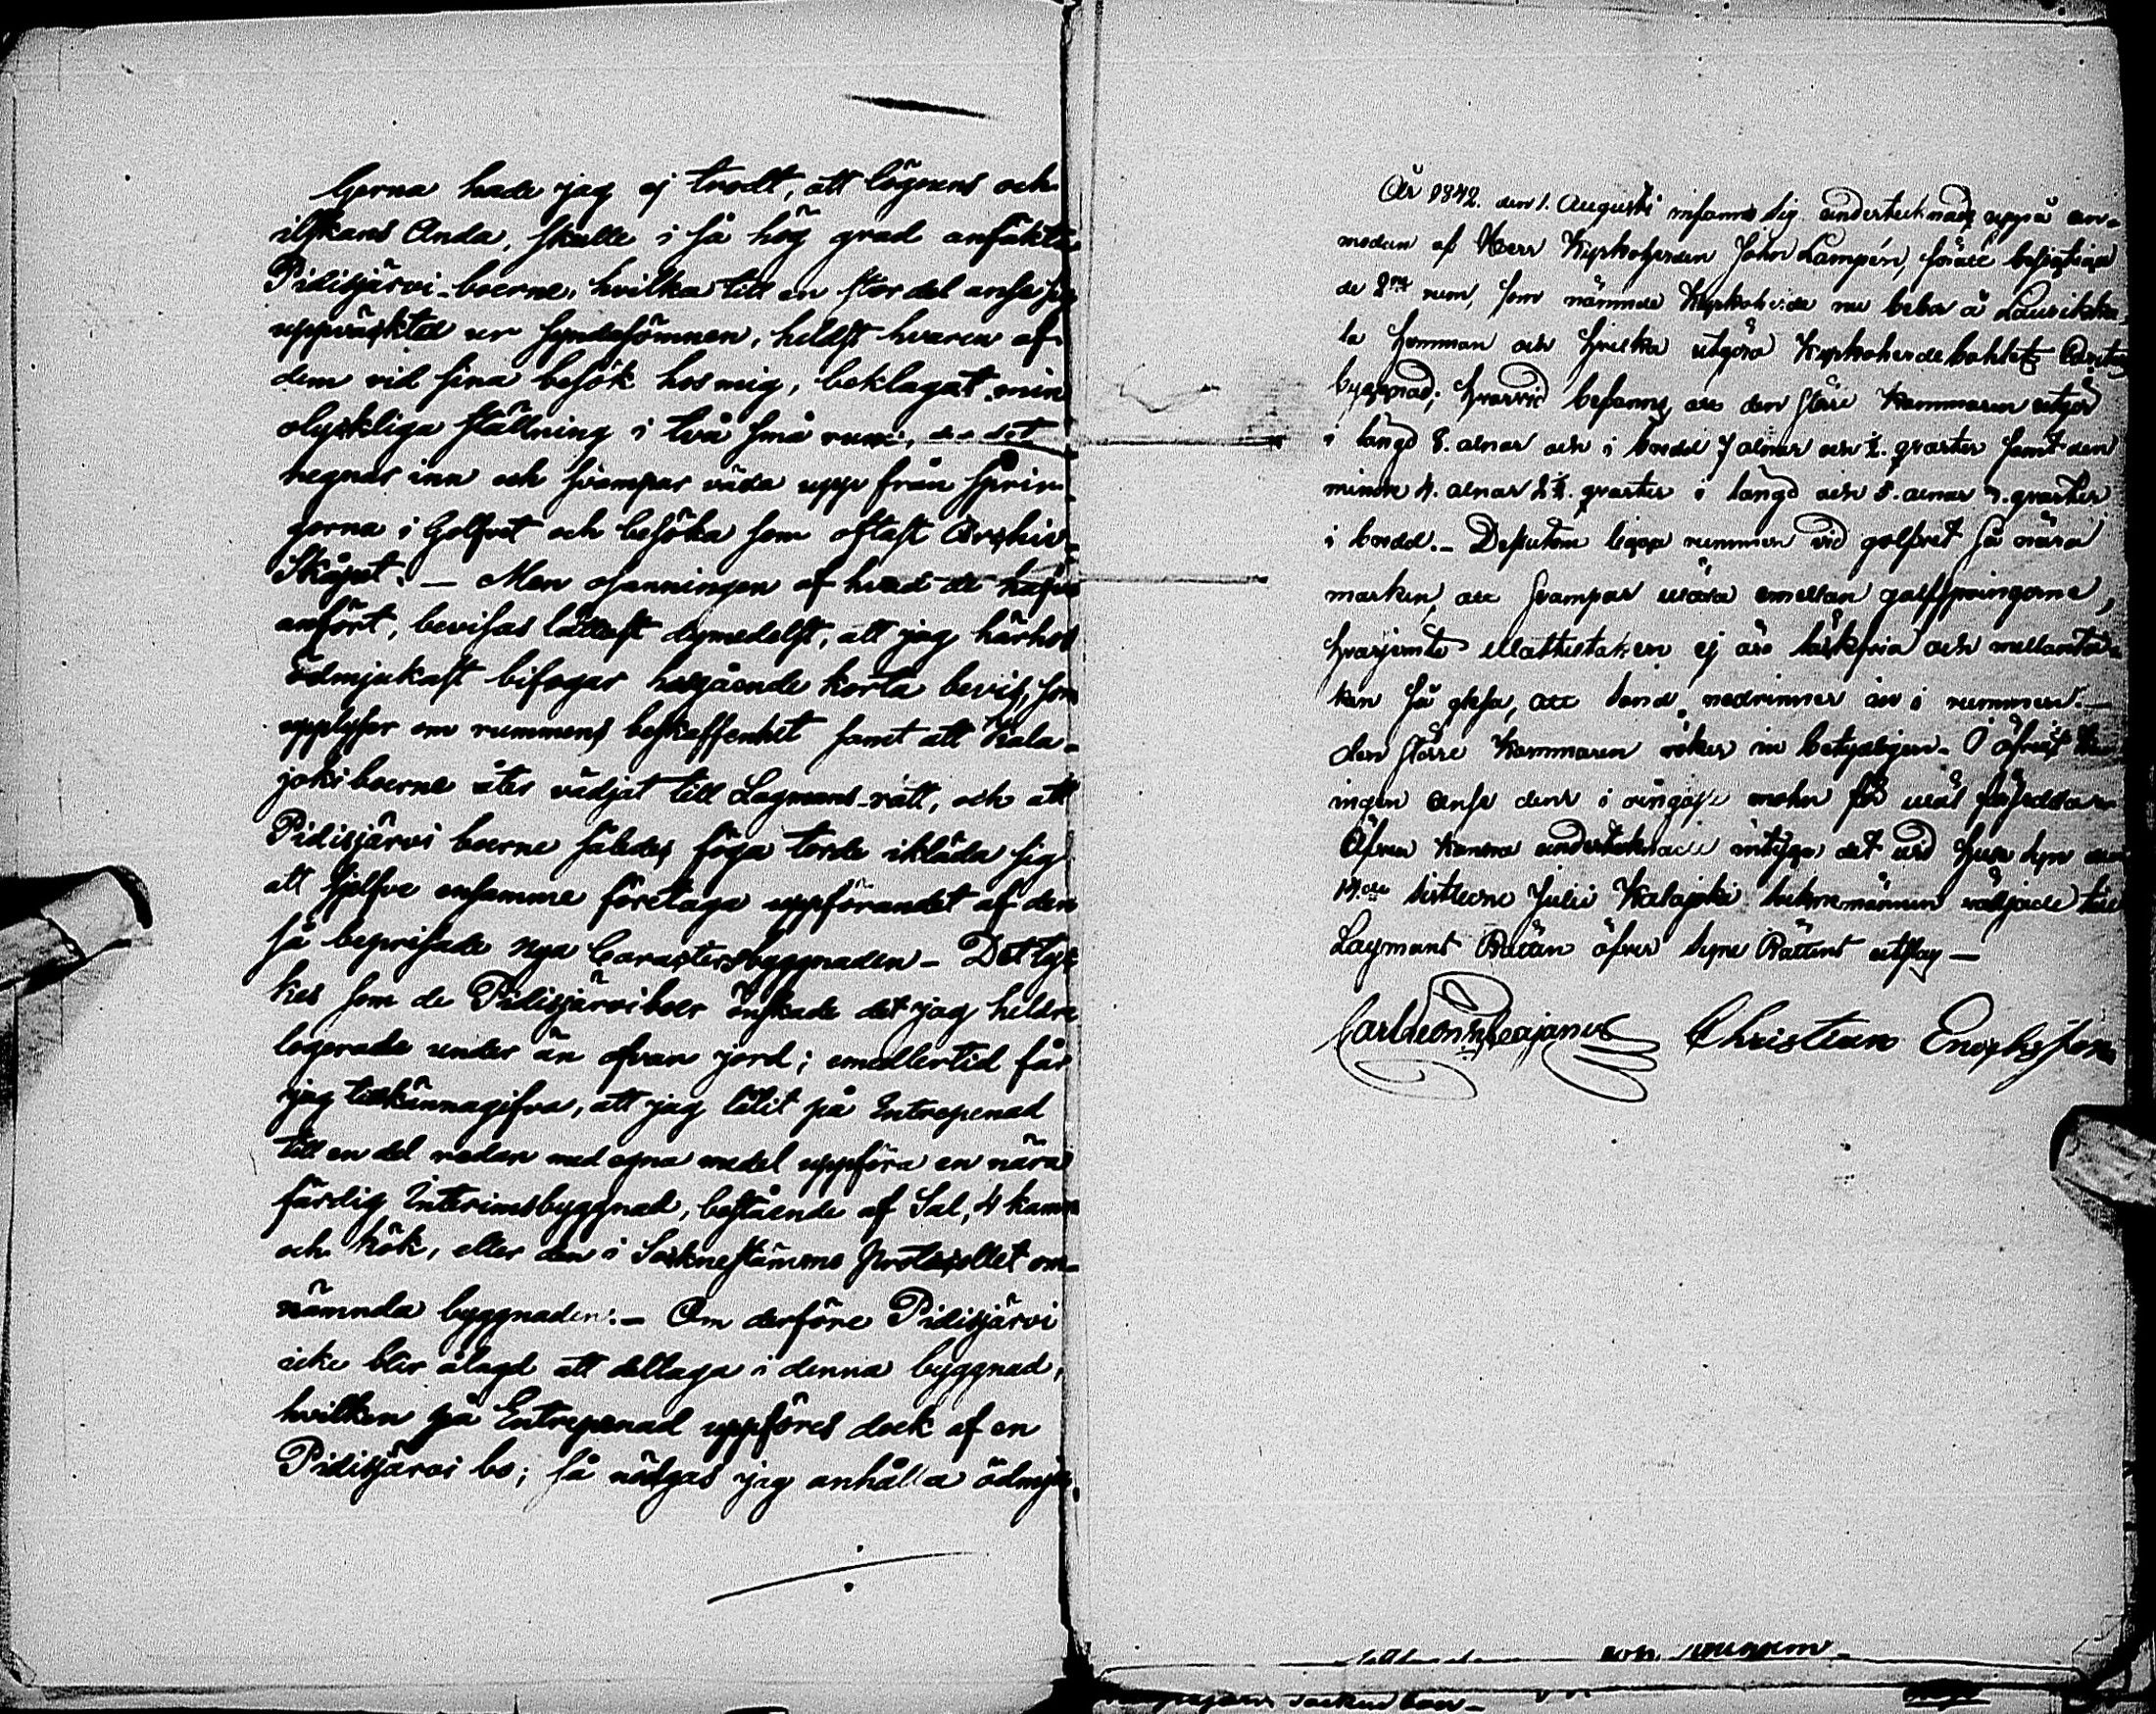 Gerna hade jag ej trodt, att lögnens och
ilskans Anda, skulle i så hög grad anfäkta
Pidisjärvi-boerne, hvilka till en stor del anse sig
uppväckta ur syndasömnen, heldst hvaren af
dem vid sina besök hos mig, beklagat min
olyckliga ställning i två små rum, der det
regnar inn och svampar växa upp från sprin-
gorna i Golfvet och besöka som oftast Archiv-
Skåpet. — Men osanningen af hvad de hafva
anfört, bevisas lättast dymedelst, att jag härhos
ödmjukast bifogar hosgående korta bevis, som
upplyser om rummens beskaffenhet samt att Kala-
joki boerne åter vädjat till Lagmans-rätt, och att
Pidisjärvi boerne således föga torde ikläda sig
att sjelfve ensamme företaga uppförandet af den
så beprisade nya Caractersbyggnaden — Det tyc-
kes som de Pidisjärviboer önskade det jag heldre
logerade under än ofvan jord; emedlertid får
jag tillkännagifva, att jag låtit på Entrepenad
till en del redan med egna medel uppföra en nära
färdig Interimsbyggnad, bestående af Sal, 4 kamr
och kök, eller den i Sockenstämmo Protocollet om-
nämnda byggnaden. — Om derföre Pidisjärvi
icke blir ålagd att deltaga i denna byggnad,
hvilken på Entrepenad uppföres dock af en
Pidisjärvi bo; så nödgas jag anhålla ödmju-
År 1842. den 1. Augusti infann sig undertecknade uppå an-
modan af Herr Kyrkoherden John Lampén, för att besigtiga
de 2ne rum, som nämnde Kyrkoherde nu bebor å
la hemman och hvilka utgöra Kyrkoherdebohlets
byggnad; hvarvid befanns att den större Kammaren utgör
i längd 8. alnar och i bredd 7 alnar och ½. qvarter samt den
mindre 4. alnar 2½. qvarter i längd och 5. alnar qvarter
i bredd. — Dessutom ligga rummen vid golfvet så nära
marken, att svampar växa emellan golfspringorne,
hvarjemte Vattutaken ej äro läckfria och mellanta-
ken så glesa, att sand nedrinner in i rummen. —
den större Kammaren röker in betydeligen. I öfrigt kan
ingen anse dem i någon mohn för väl försedda
Äfven kunna undertecknade intyga det vid husesyn den
14de sistledne Julii Kalajoki socknemännen vädjade till
Lagmans Rätten öfver Syne Rättens utslag —
Christian Enochsson